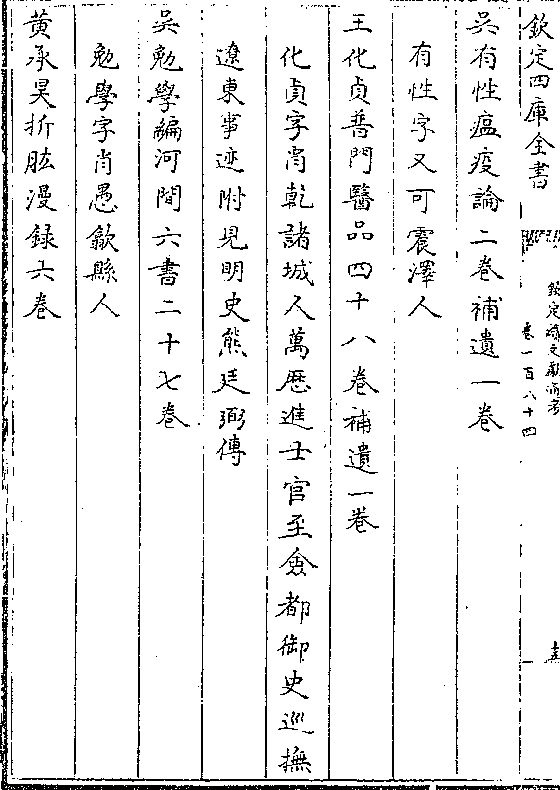 欽定四庫全書
欽定續文獻通考
卷一百八十四
吳有性瘟疫論二卷補遺一卷
有性字又可震澤人
王化貞普門醫品四十八卷補遺一卷
化貞字肖乾諸城人萬厯進士官至僉都御史巡撫
遼東事迹附見明史熊廷弼傳
吳勉學編河間六書二十七卷
勉學字肖愚歙縣人
黄承昊折肱漫録六卷